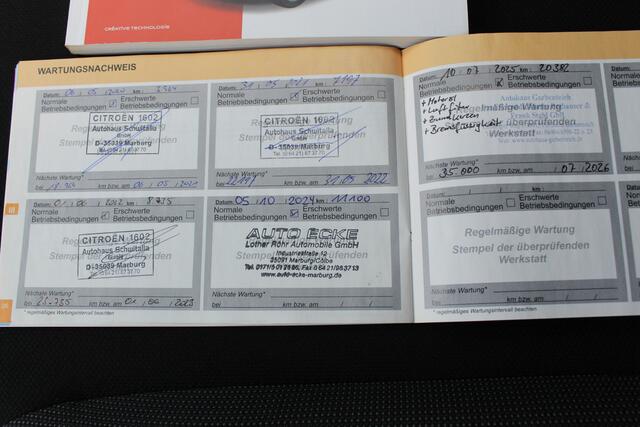 CRÉATIVE TECHNOLOGIE
WARTUNGSNACHWEIS
Datum: 06 05 km:
Normale Betriebsbedingungen
Erschwerte Betriebsbedingungen
CITROËN 1602
Autohaus Schuitalla
GmbH
D-35039 Marburg
Nächste Wartung*
bei km bzw. am
Datum: 31 05 km: 7197
Normale Betriebsbedingungen
Erschwerte Betriebsbedingungen
CITROËN 1602
Autohaus Schuitalla
GmbH
D-35039 Marburg
Nächste Wartung*
bei 22197 km bzw. am 31 05 2022
km: 8735
Normale Betriebsbedingungen
Erschwerte Betriebsbedingungen
CITROËN 1602
Autohaus Schuitalla
GmbH
D-35039 Marburg
Nächste Wartung*
bei 23.735 km bzw. am 01 06 2023
* regelmäßiges Wartungsintervall beachten
05 10 2024 km: 11100
Normale Betriebsbedingungen
Erschwerte Betriebsbedingungen
AUTO ECKE
Lothar Röhr Automobile GmbH
Industriestraße 12
35091 Marburg/Cölbe
www.auto-ecke-marburg.de
Nächste Wartung*
bei km bzw. am / /
Datum: 10 07 2025 km: 20382
Normale Betriebsbedingungen
Erschwerte Betriebsbedingungen
+ Motoröl
+ Luftfilter
+ Zündkerzen
+ Bremsflüssigkeit
Regelmäßige Wartung
Stempel der überprüfenden
Werkstatt
Nächste Wartung*
bei 35.000 km bzw. am / 07 / 2026
Datum: / / km:
Normale Betriebsbedingungen
Erschwerte Betriebsbedingungen
Regelmäßige Wartung
Stempel der überprüfenden
Werkstatt
Nächste Wartung*
bei km bzw. am / /
* regelmäßiges Wartungsintervall beachten